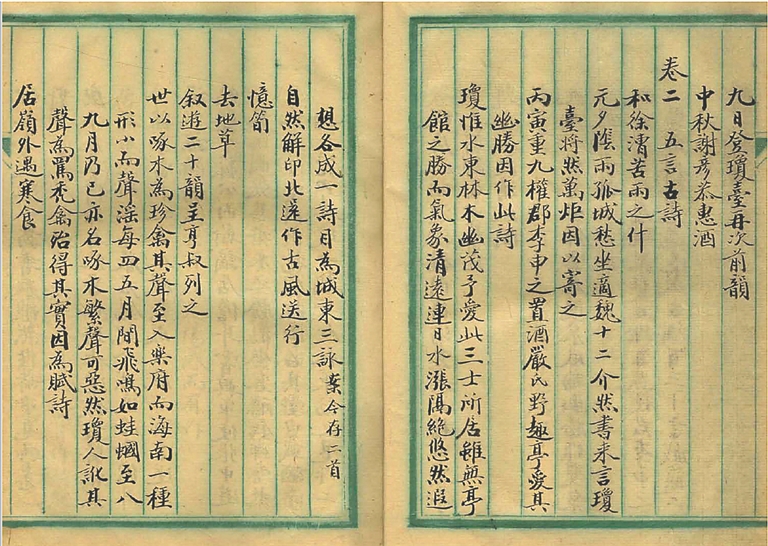 九日登瓊臺再次前韻
中秋謝彥恭惠酒
卷二 五言古詩
和徐漕苦雨之什
元夕陰雨孤城愁坐適魏十二介然書來言瓊
臺將然萬炬因以寄之
丙寅重九權郡李申之置酒嚴氏野趣亭愛其
幽勝因作此詩
瓊惟水東林木幽茂予愛此三士所居雖無亭
館之勝而氣象清遠連日水漲隔絕悠然遐
想各成一詩目為城東三詠案今存二首
自然解印北遂作古風送行
憶筍
去地草
叙遊二十韻呈亨叔列之
世以啄木為珍禽其聲至入樂府而海南一種
形小而聲淫每四五月間飛鳴如蛙蟈至八
九月乃已亦名啄木繁聲可惡然瓊人訛其
聲為罵禿禽始得其實因為賦詩
居嶺外遇寒食